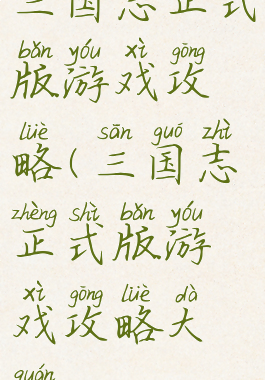 三国志正式
bǎn yóu xì gōng
版游戏攻
lüè sān guó zhì
略(三国志
zhèng shì bǎn yóu
正式版游
xì gōng lüè dà
戏攻略大
quán